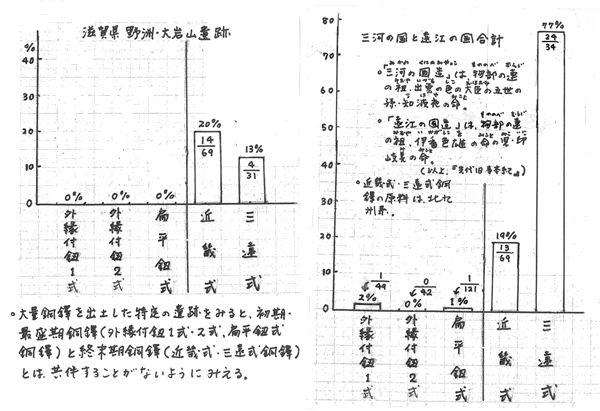 滋賀県 野洲・大岩山遺跡
%
40
30
20
10
0
0%
0%
0%
20%
14/69
13%
4/31
外縁付鈕1式
外縁付鈕2式
扁平鈕式
近畿式
三遠式
○大量銅鐸を出土した特定の遺跡をみると、初期・
最盛期銅鐸(外縁付鈕1式・2式、扁平鈕式
銅鐸)と終末期銅鐸(近畿式・三遠式銅鐸)
とは共伴することがないようにみえる。
三河の国と遠江の国合計
80
70
60
50
40
30
20
10
0
○「三河の国造」は、物部の連
の祖、出雲の色の大臣の五世の
孫・知波夜の命。
○「遠江の国造」は、物部の連
の祖、伊香色雄の命の児・印
岐美の命。
(以上、『先代旧事本紀』)
○近畿式・三遠式銅
鐸の原料は、北九
州系。
1/49
2%
0/42
0%
1/121
1%
19%
13/69
77%
24/34
外縁付鈕1式
外縁付鈕2式
扁平鈕式
近畿式
三遠式